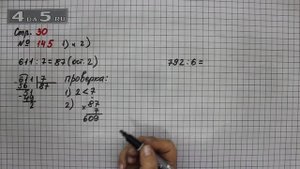 4DA5.RU
Стр. 30
№ 145 1) и 2)
611 : 7 = 87 (ост. 2)
792 : 6 =
611 7
56 87
51
-49
2
проверка:
1) 2 < 7
2) × 87
7
609